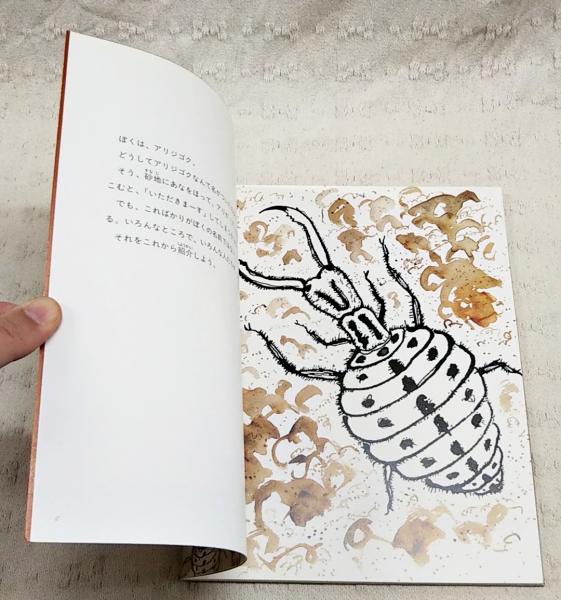 ぼくは、アリジゴク。
どうしてアリジゴクなんて名が
そう、砂地にあなをほって、アリが
こむと、「いただきまーす」してし
でも、こればかりがぼくの名前では
る。いろんなところで、いろんな人に
それをこれから紹介しよう。